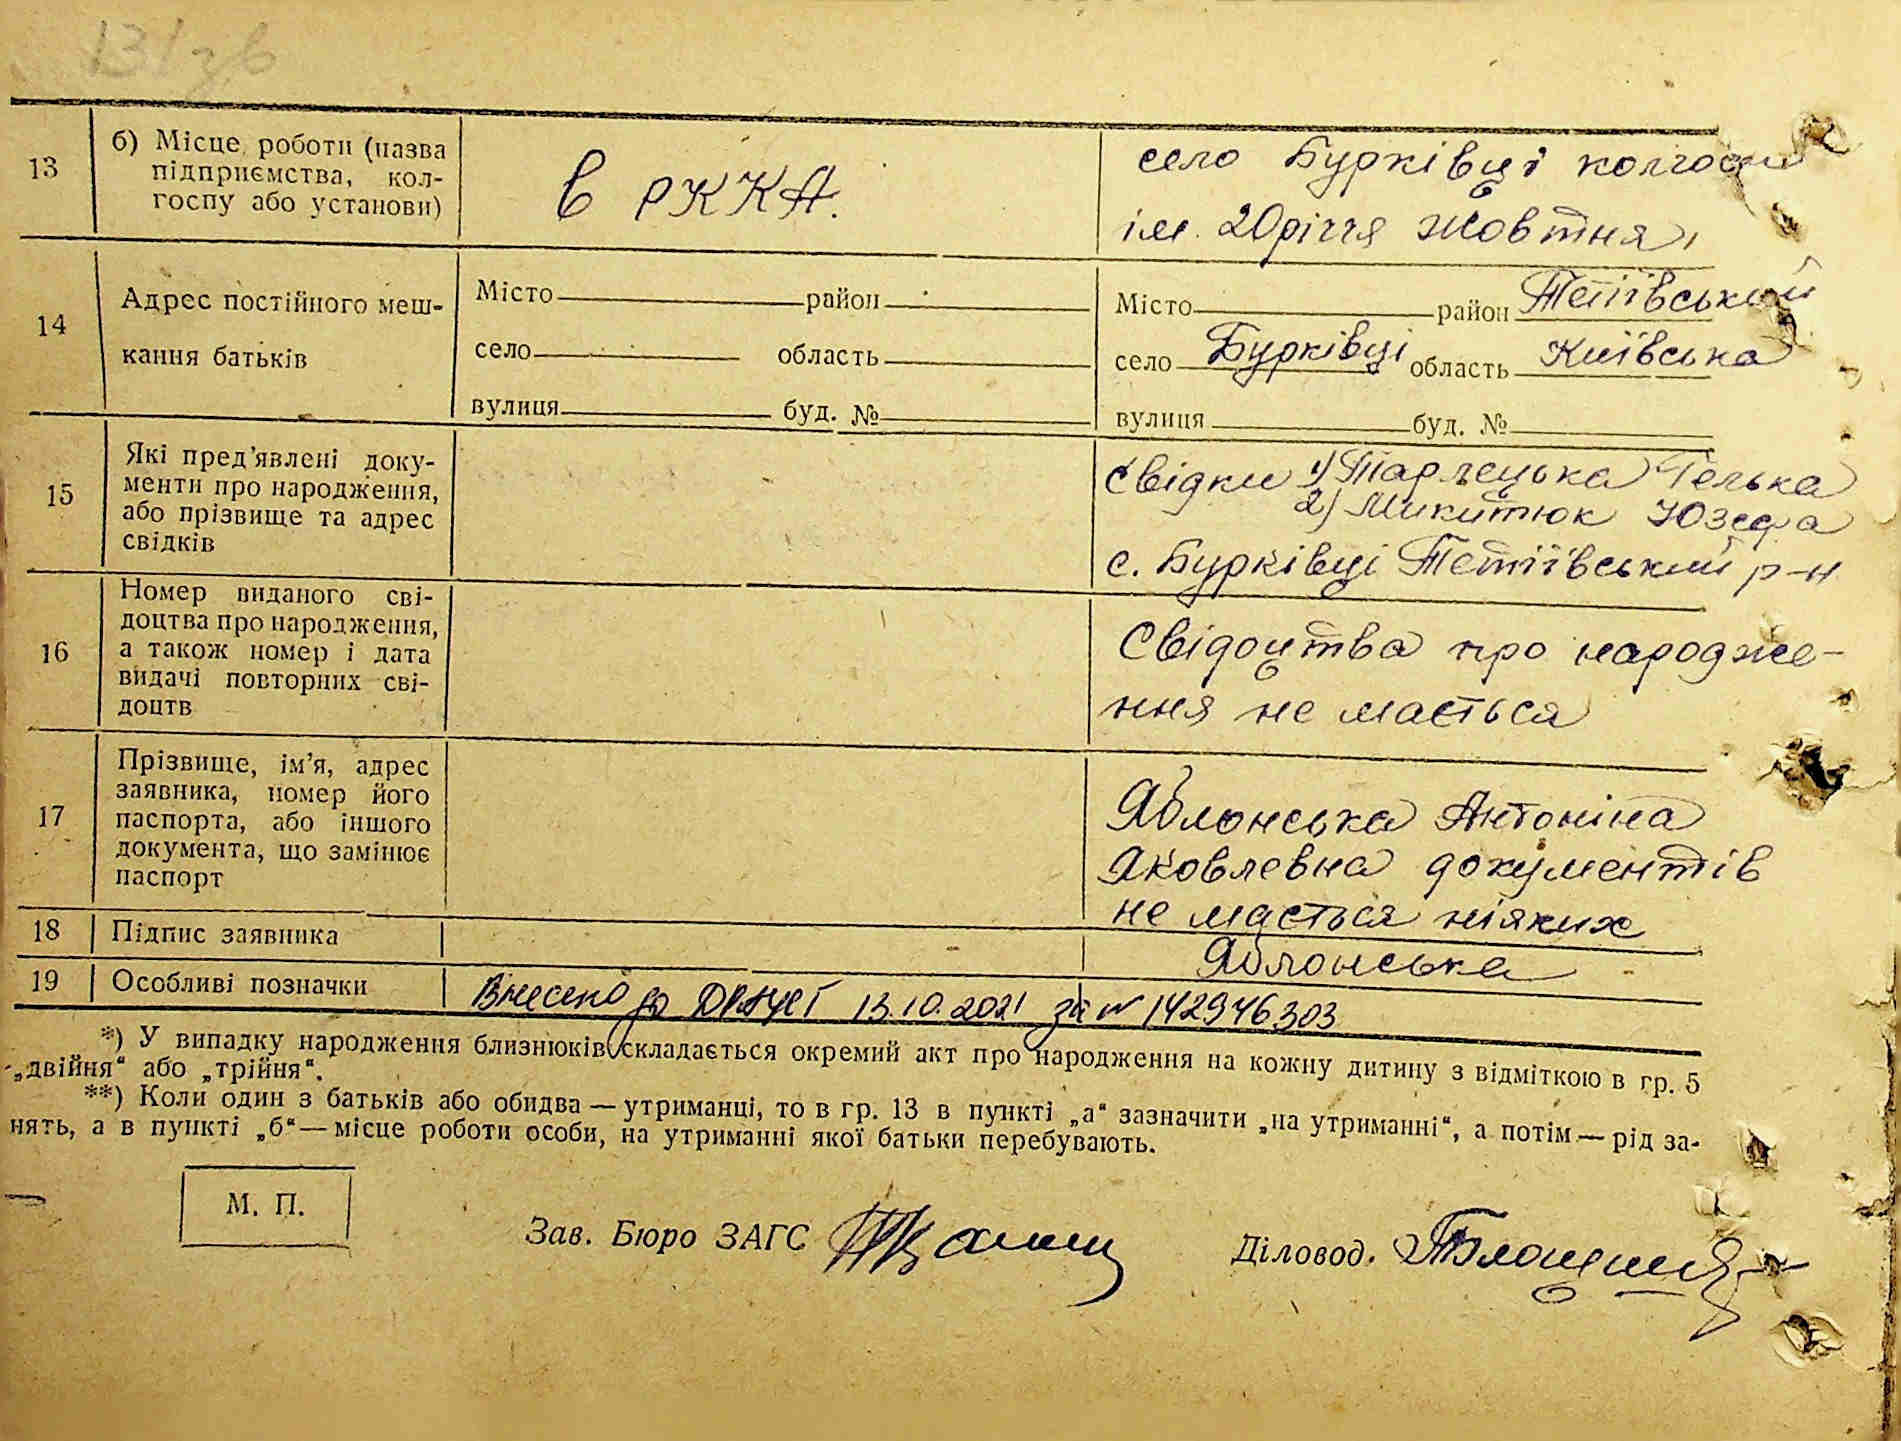 131зв
13
б) Місце роботи (назва
підприємства, кол-
госпу або установи)
в РККА.
село Бурківці колгосп
ім. 20річчя Жовтня,
14
Адрес постійного меш-
кання батьків
Місто район
село область
вулиця буд. №
Місто район Тетіївський
село Бурківці область Київська
вулиця буд. №
15
Які пред’явлені доку-
менти про народження,
або прізвище та адрес
свідків
Свідки 1) Тарлецька Гелька
2) Микитюк Юзефа
с. Бурківці Тетіївський р-н
16
Номер виданого сві-
доцтва про народження,
а також номер і дата
видачі повторних сві-
доцтв
Свідоцтва про народже-
ння не мається
17
Прізвище, ім’я, адрес
заявника, номер його
паспорта, або іншого
документа, що замінює
паспорт
Яблонська Антоніна
Яковлевна документів
не мається ніяких
18
Підпис заявника
Яблонська
19
Особливі позначки
Внесено до ДРАЦСГ 13.10.2021 за № 142946303
*) У випадку народження близнюків складається окремий акт про народження на кожну дитину з відміткою в гр. 5
„двійня“ або „трійня“.
**) Коли один з батьків або обидва — утриманці, то в гр. 13 в пункті „а“ зазначити „на утриманні“, а потім — рід за-
нять, а в пункті „б“ — місце роботи особи, на утриманні якої батьки перебувають.
М. П.
Зав. Бюро ЗАГС
Діловод.